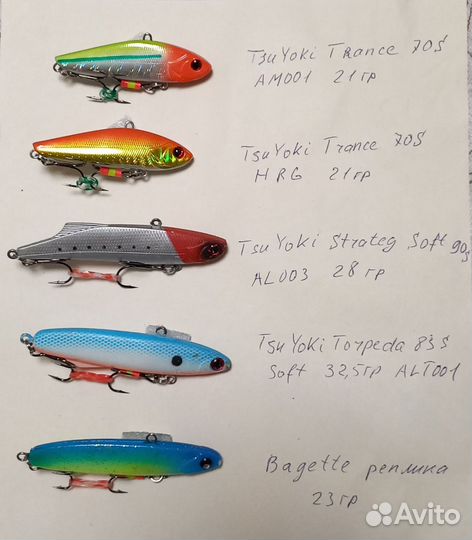 TsuYoki Trance 70S
AM001 21гр
TsuYoki Trance 70S
HRG 21гр
TsuYoki Strateg Soft 90s
AL003 28гр
TsuYoki Torpeda 83S
Soft 32,5гр ALT001
Bagette реплика
23гр
Avito